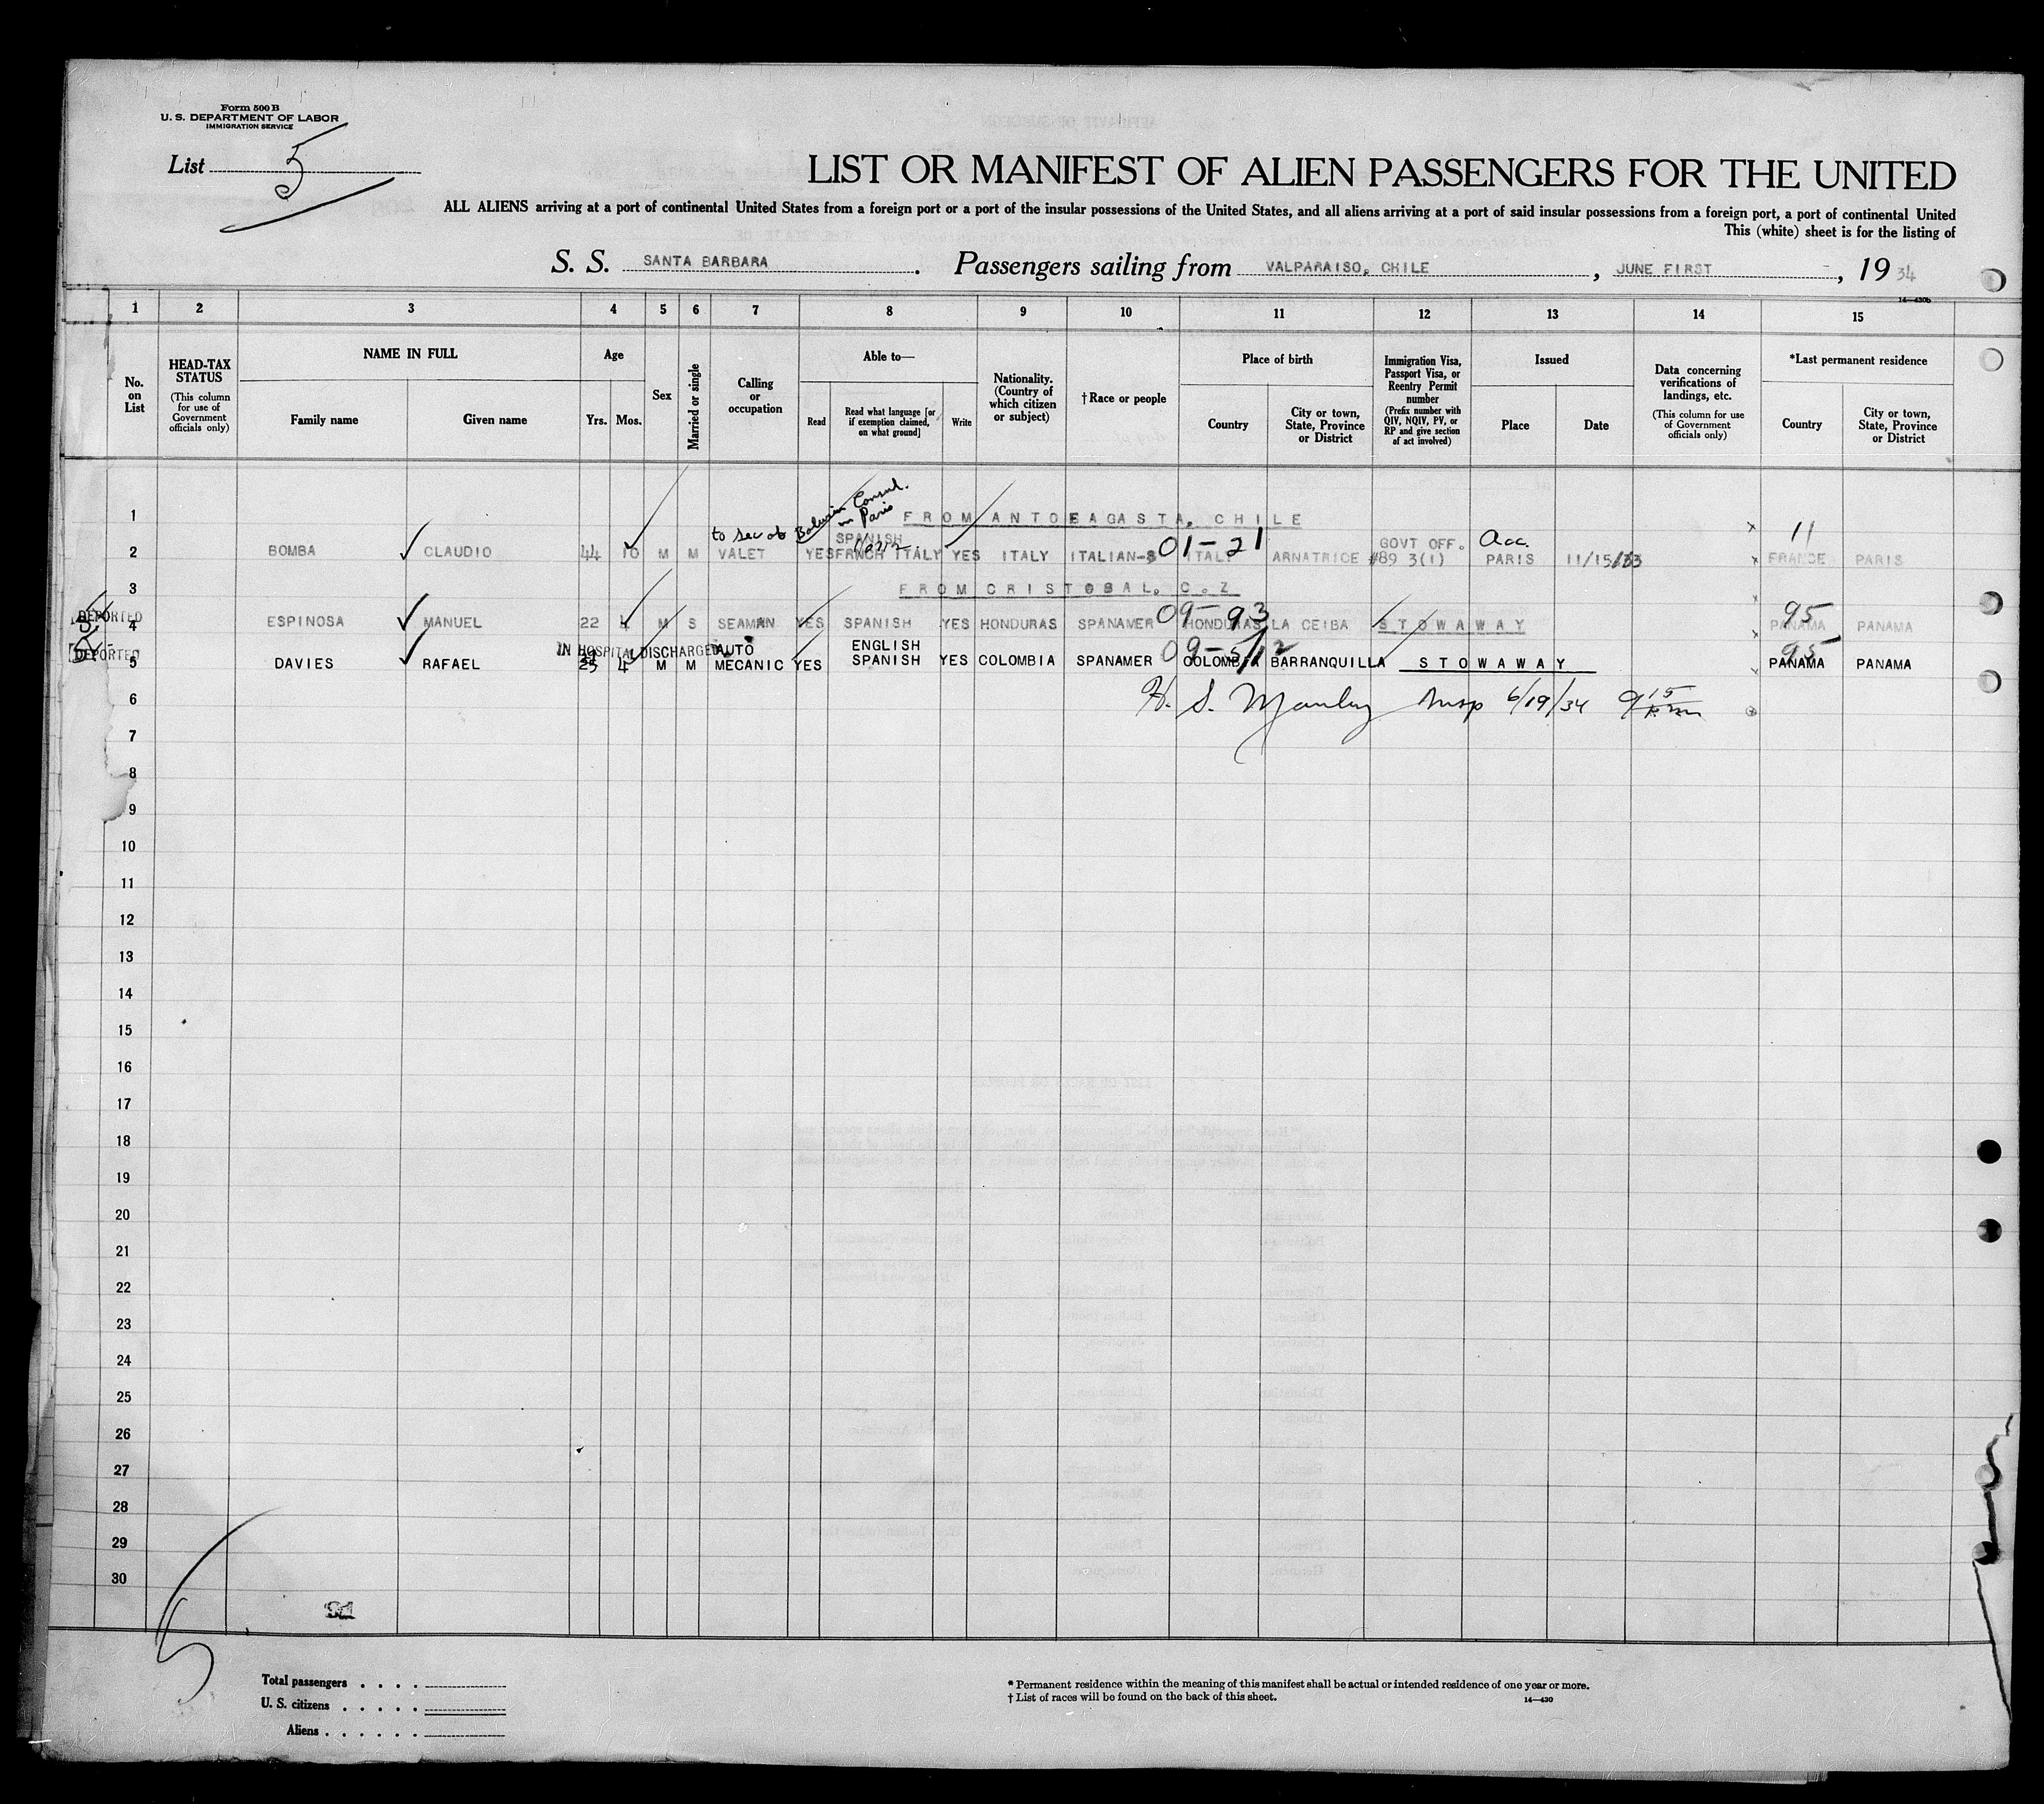 Form 500 B
U. S. DEPARTMENT OF LABOR
IMMIGRATION SERVICE
List 5
LIST OR MANIFEST OF ALIEN PASSENGERS FOR THE UNITED
ALL ALIENS arriving at a port of continental United States from a foreign port or a port of the insular possessions of the United States, and all aliens arriving at a port of said insular possessions from a foreign port, a port of continental United
This (white) sheet is for the listing of
S. S. SANTA BARBARA. Passengers sailing from VALPARAISO, CHILE, JUNE FIRST, 1934
14—430b
1 2 3 4 5 6 7 8 9 10 11 12 13 14 15
No. on List
HEAD-TAX STATUS
(This column for use of Government officials only)
NAME IN FULL
Family name Given name
Age
Yrs. Mos.
Sex
Married or single
Calling or occupation
Able to—
Read
Read what language [or if exemption claimed, on what ground]
Write
Nationality. (Country of which citizen or subject)
† Race or people
Place of birth
Country
City or town, State, Province or District
Immigration Visa, Passport Visa, or Reentry Permit number
(Prefix number with QIV, NQIV, PV, or RP and give section of act involved)
Issued
Place Date
Data concerning verifications of landings, etc.
(This column for use of Government officials only)
*Last permanent residence
Country
City or town, State, Province or District
1 FROM ANTOFAGASTA, CHILE
Consul. in Paris
to sec of
2 BOMBA CLAUDIO 44 10 M M VALET YES SPANISH FRNCH ITALY YES ITALY ITALIAN-S 01-21 ITALY ARNATRICE GOVT OFF. #89 3(1) Acc. PARIS 11/15/33 11 FRANCE PARIS
3 FROM CRISTOBAL, C. Z
DEPORTED
4 ESPINOSA MANUEL 22 4 M S SEAMAN YES SPANISH YES HONDURAS SPANAMER 09-93 HONDURAS LA CEIBA STOWAWAY 95 PANAMA PANAMA
DEPORTED
IN HOSPITAL DISCHARGED
5 DAVIES RAFAEL 4 M M AUTO MECANIC YES ENGLISH SPANISH YES COLOMBIA SPANAMER 09-5/12 COLOMBIA BARRANQUILLA STOWAWAY 95 PANAMA PANAMA
6 H. S. Manley Insp 6/19/34 9 15
7
8
9
10
11
12
13
14
15
16
17
18
19
20
21
22
23
24
25
26
27
28
29
30
5
Total passengers
U. S. citizens
Aliens
* Permanent residence within the meaning of this manifest shall be actual or intended residence of one year or more.
† List of races will be found on the back of this sheet.
14—430